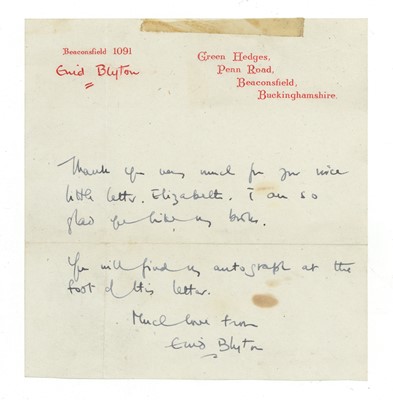 Beaconsfield 1091
Enid Blyton
Green Hedges,
Penn Road,
Beaconsfield,
Buckinghamshire.
Thank you very much for your nice
little letter, Elizabeth. I am so
glad you like my books.
You will find my autograph at the
foot of this letter.
Much love from
Enid Blyton